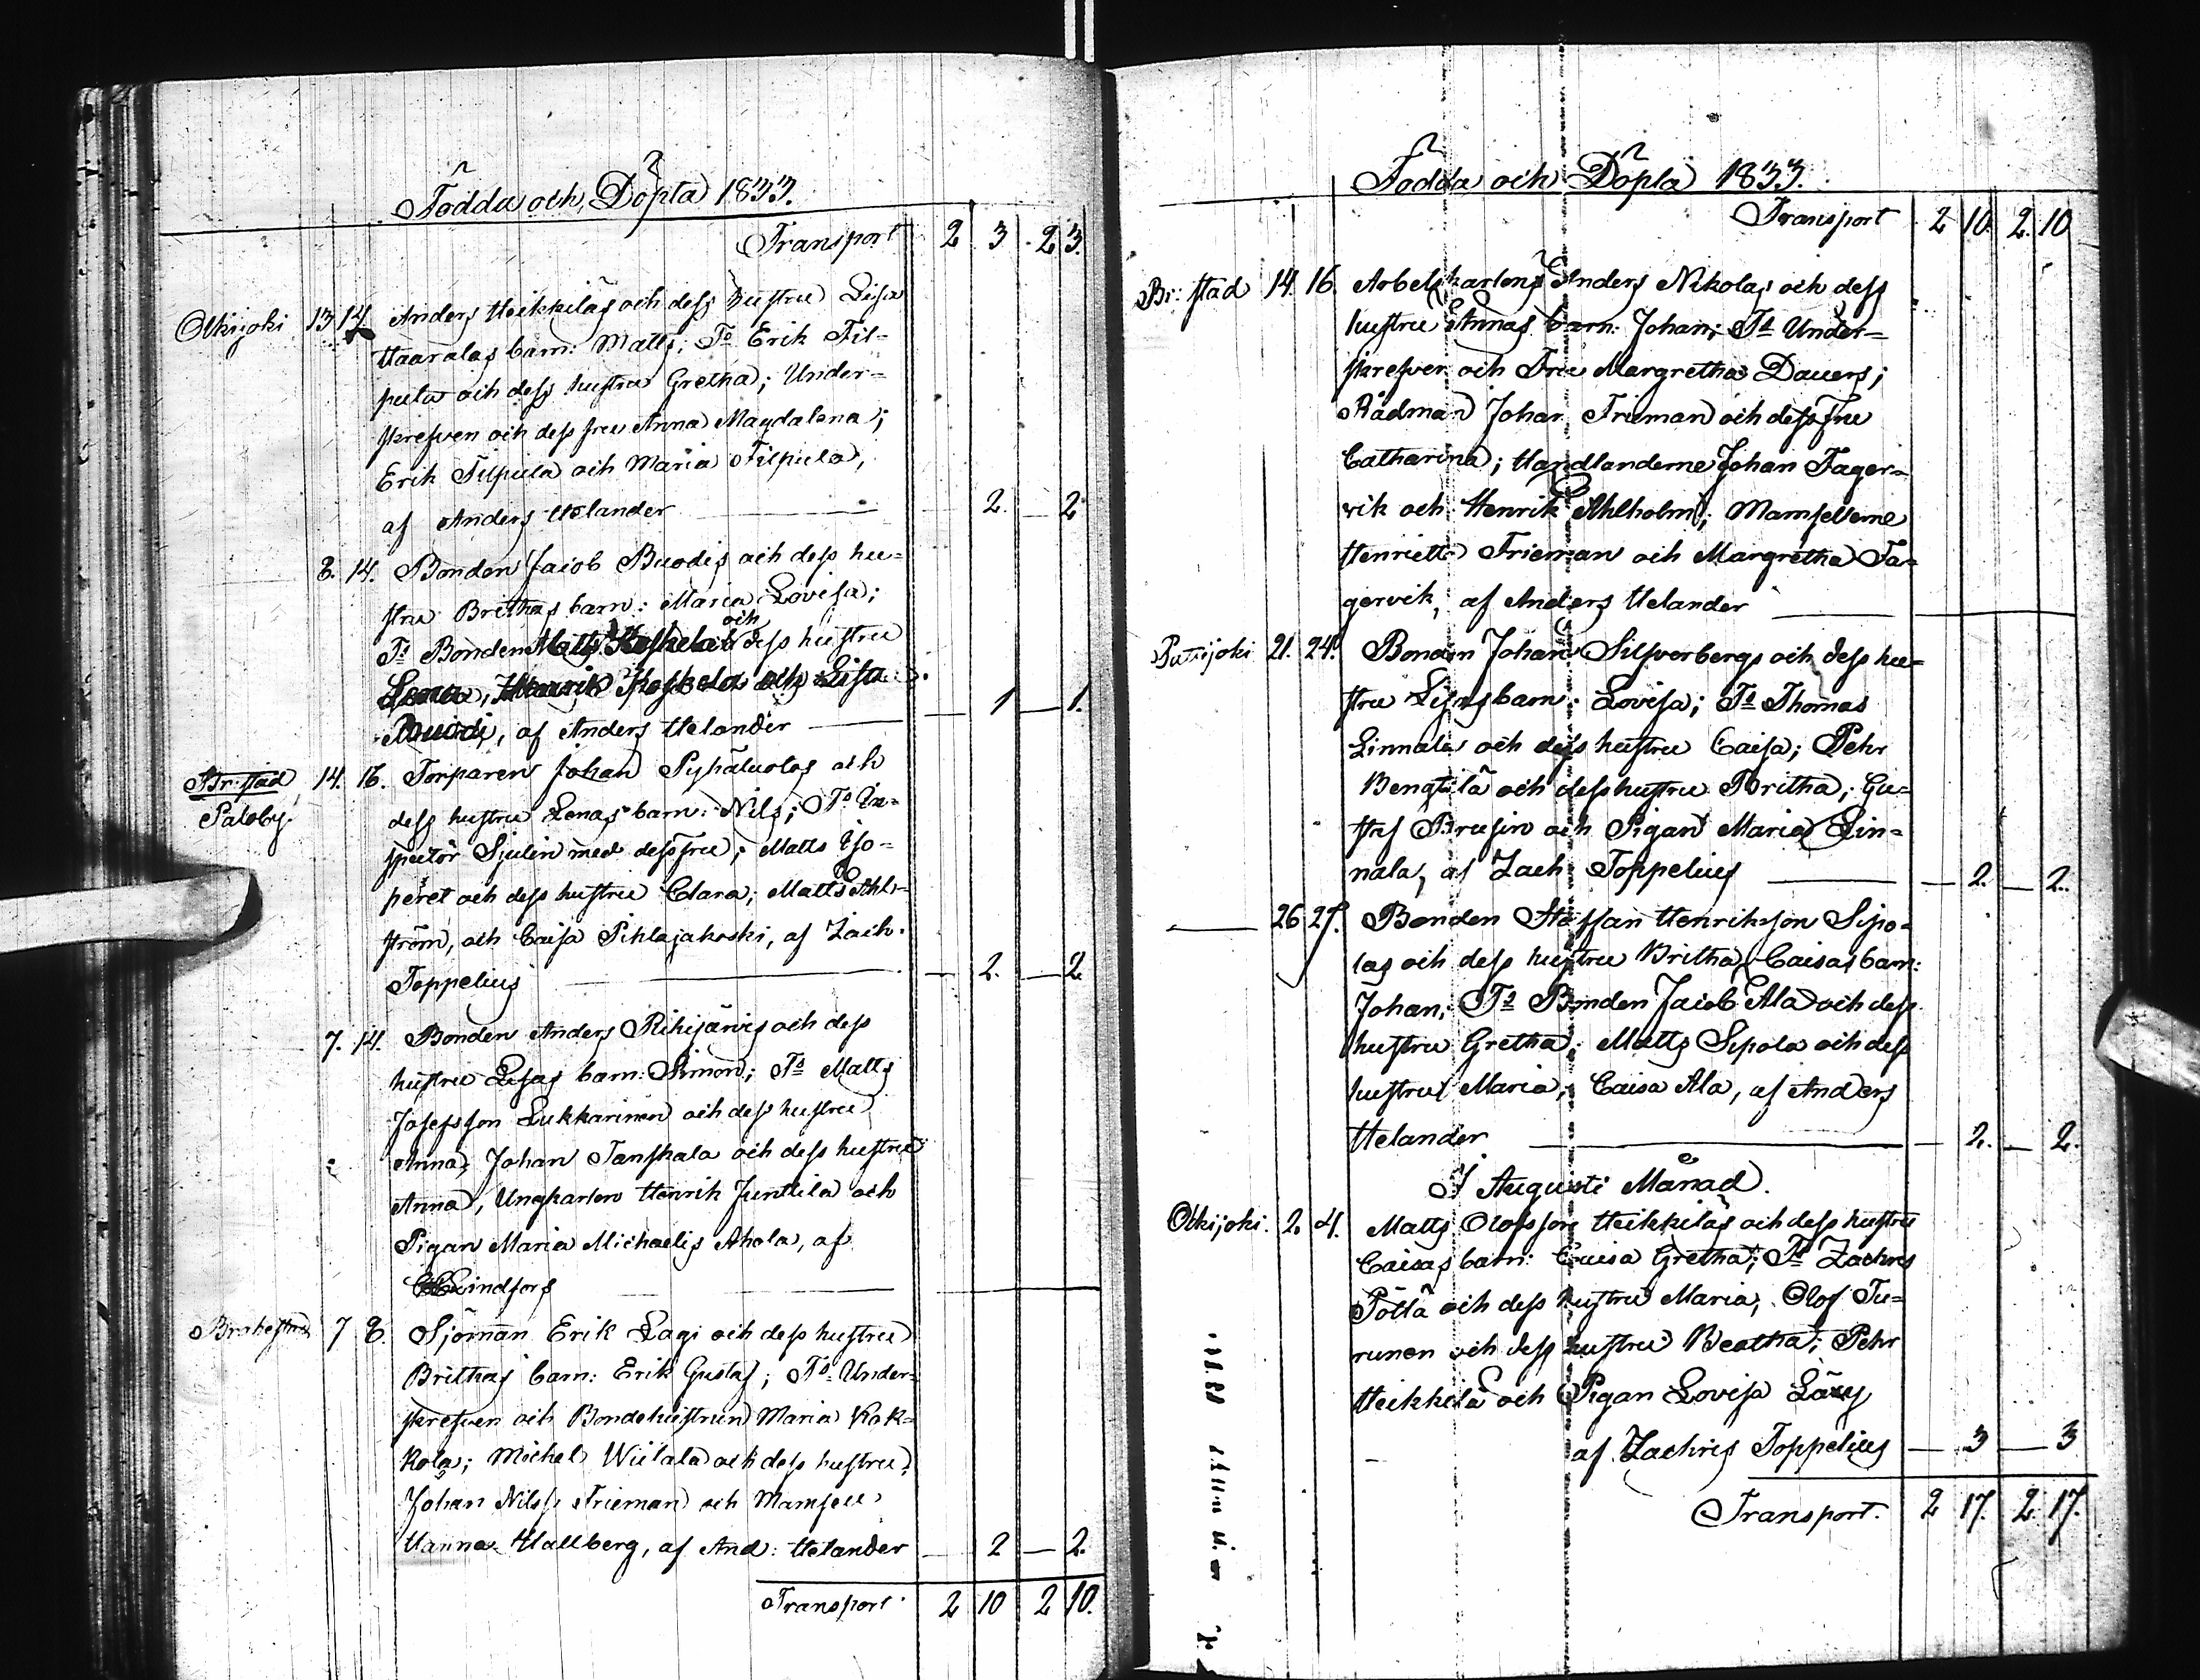 Födda och Döpta 1833.
Transport 2 3 2 3.
Olkijoki 13 14. Anders Heikkiläs och dess hustru Lisa
Haaralas barn: Matts; Ts Erik Fil-
pula och dess hustru Gretha; Under-
skrefven och dess fru Anna Magdalena;
Erik Filpula och Maria Filpula,
af Anders Helander 2. 2
8. 14. Bonden Jacob Buodis och dess hu-
stru Brithas barn: Maria Lovisa;
och
Ts Bonden Matts Koskela dess hustru
Lena, Henrik Koskela och Lisa
Buodi, af Anders Helander 1 1.
Br: stad 14. 16. Torparen Johan Pyhäluotos och
Saloby. dess hustru Lenas barn: Nils; Ts In-
spector Sjulin med dess fru; Matts Iso-
peret och dess hustru Clara; Matts Ahl-
ström, och Caisa Pihlajakoski, af Zach.
Toppelius 2. 2
7. 14. Bonden Anders Rihijärvis och dess
hustru Lisas barn: Simon; Ts Matts
Josefsson Lukkarinen och dess hustru
Anna, Johan Tanskala och dess hustru
Anna, Ungkarlen Henrik Junttila och
Pigan Maria Michaelis Ahola, af
Lindfors
Brahestad 7 8. Sjöman Erik Lagi och dess hustru
Brithas barn: Erik Gustaf; Ts Under-
skrefven och Bondehustrun Maria Kok-
kola; Michel Wiitala och dess hustru,
Johan Nilss. Frieman och Mamsell
Hanna Hallberg, af And: Helander 2 2.
Transport 2 10 2 10.
Födda och Döpta 1833.
Transport 2 10. 2. 10
Br: stad 14. 16. Arbetskarlens Anders Nikolas och dess
hustru Annas barn: Johan; Ts Under-
skrefven och Fru Margretha Dauers;
Rådman Johan Frieman och dess fru
Catharina; Handlanderne Johan Fager-
vik och Henrik Ahlholm; Mamsellerne
Henriette Frieman och Margretha Fa-
gervik, af Anders Helander
Pattijoki 21. 24. Bonden Johan Silfverbergs och dess hu-
stru Lisas barn: Lovisa; Ts Thomas
Linnala och dess hustru Caisa; Pehr
Bengtilä och dess hustru Britha; Gu-
staf Brusin och Pigan Maria Lin-
nala, af Zach Toppelius 2. 2.
26 27. Bonden Staffan Henriksson Sipo-
las och dess hustru Britha Caisas barn:
Johan; Ts Bonden Jacob Ala och dess
hustru Gretha; Matts Sipola och dess
hustru Maria, Caisa Ala, af Anders
Helander 2. 2.
I Augusti Månad.
Olkijoki. 2. 4. Matts Olofsson Heikkiläs och dess hustru
Caisas barn: Caisa Gretha; Ts Zachris
Pöllä och dess hustru Maria, Olof Tu-
runen och dess hustru Beatha; Pehr
Heikkilä och Pigan Lovisa
af Zachris Toppelius 3 3
Transport. 2 17. 2. 17.